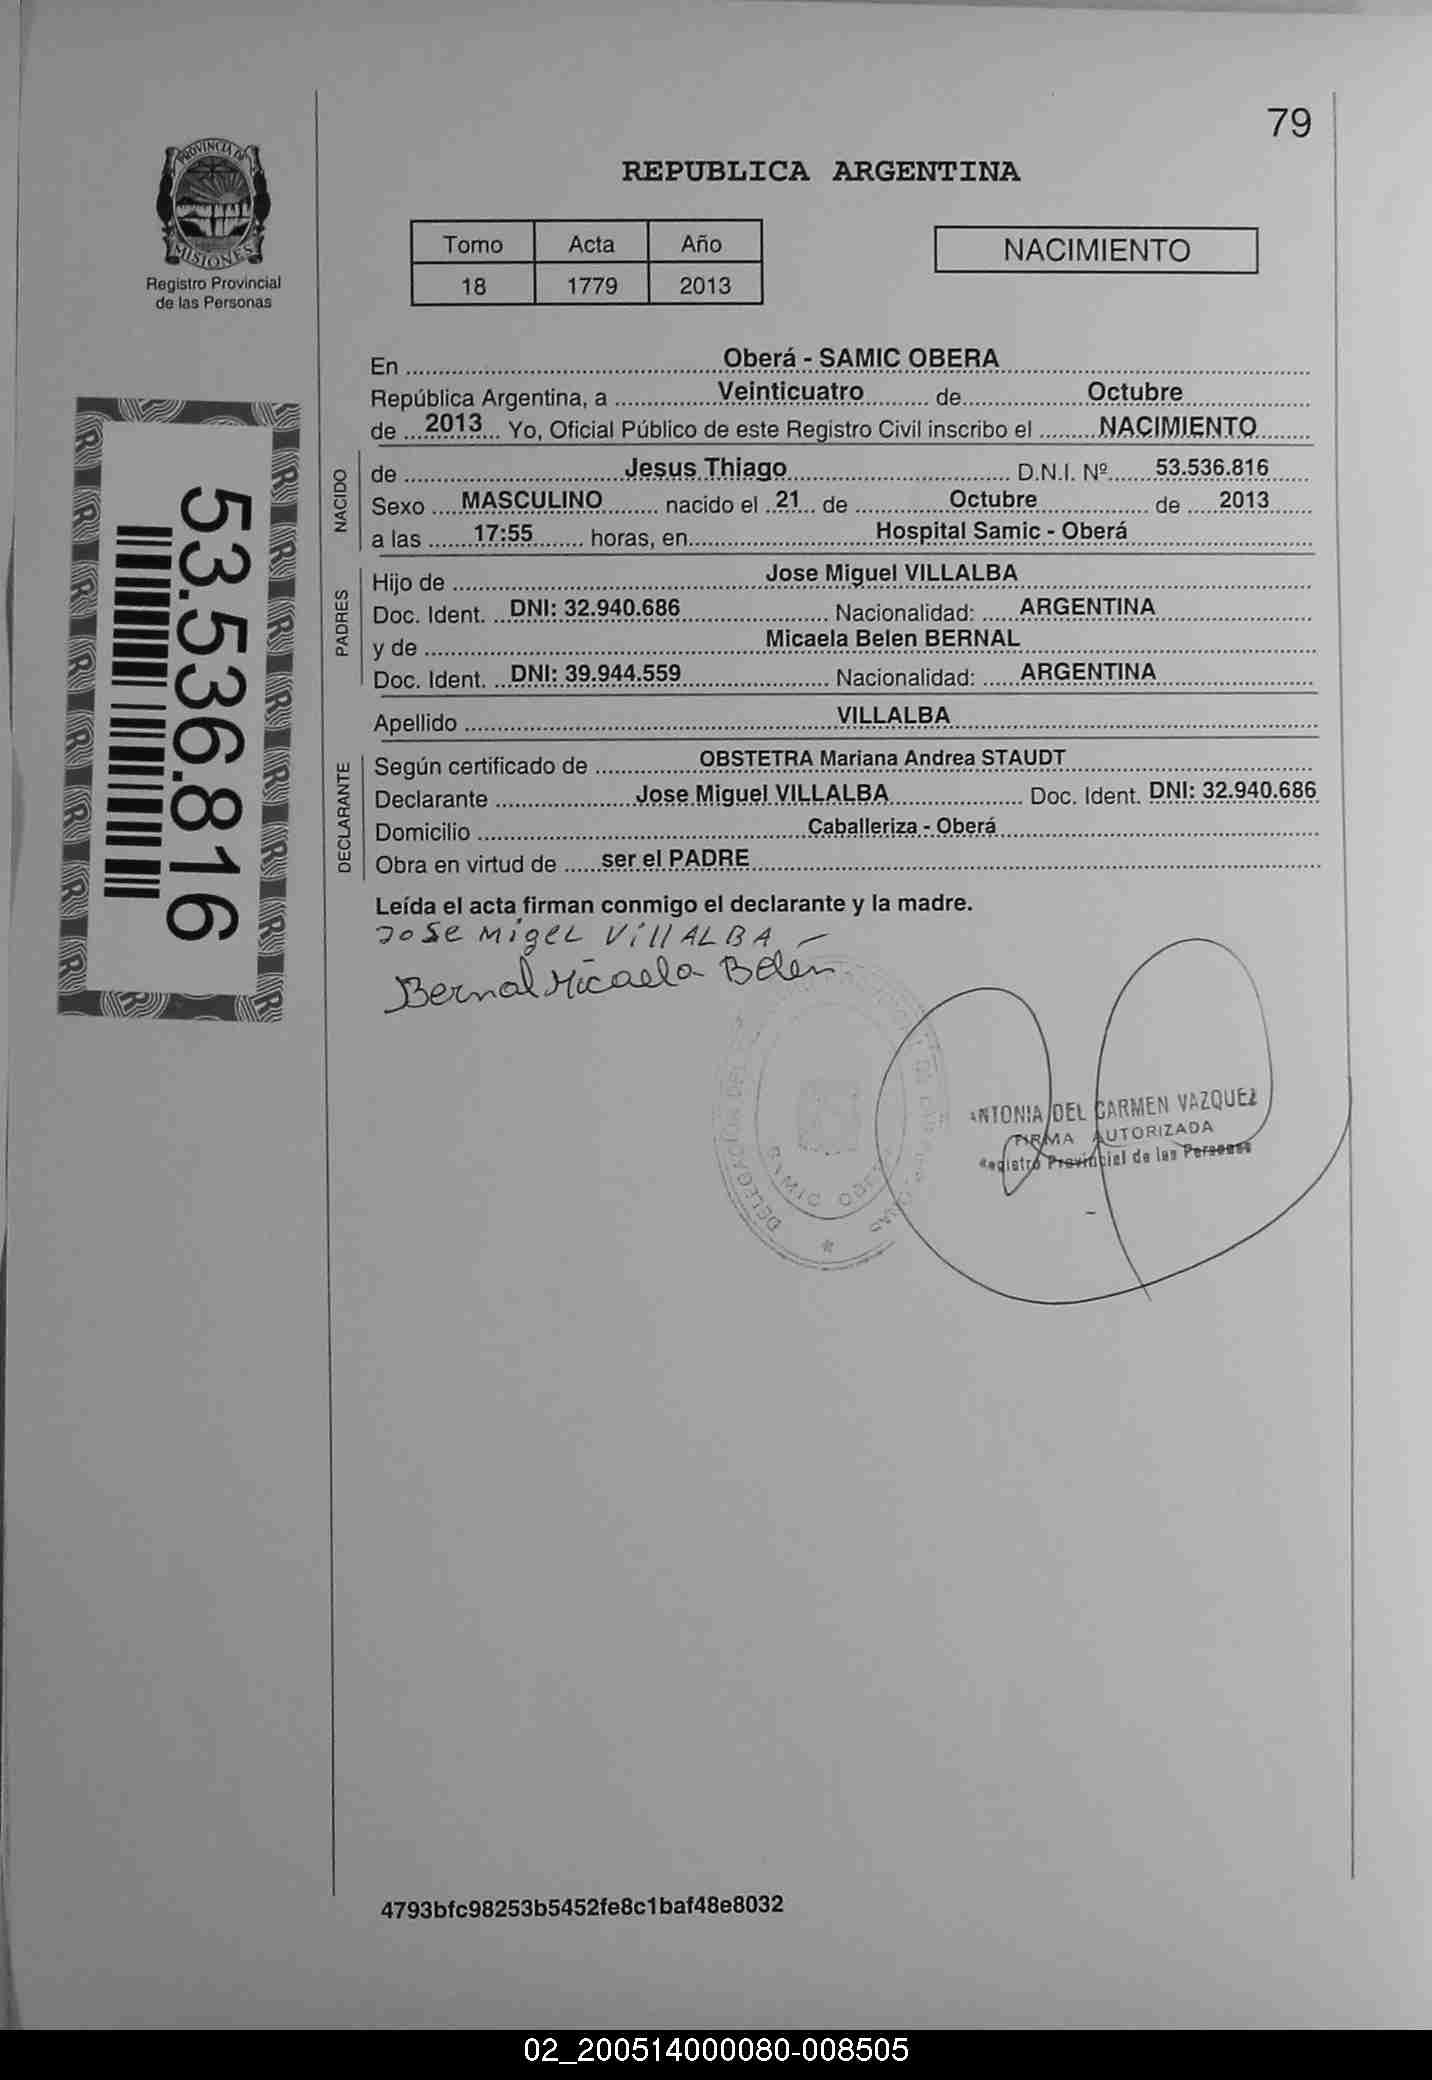 79
PROVINCIA DE
MISIONES
Registro Provincial
de las Personas
REPUBLICA ARGENTINA
Tomo Acta Año
18 1779 2013
NACIMIENTO
53.536.816
En Oberá - SAMIC OBERA
República Argentina, a Veinticuatro de Octubre
de 2013 Yo, Oficial Público de este Registro Civil inscribo el NACIMIENTO
NACIDO
de Jesus Thiago D.N.I. Nº 53.536.816
Sexo MASCULINO nacido el 21 de Octubre de 2013
a las 17:55 horas, en Hospital Samic - Oberá
PADRES
Hijo de Jose Miguel VILLALBA
Doc. Ident. DNI: 32.940.686 Nacionalidad: ARGENTINA
y de Micaela Belen BERNAL
Doc. Ident. DNI: 39.944.559 Nacionalidad: ARGENTINA
Apellido VILLALBA
DECLARANTE
Según certificado de OBSTETRA Mariana Andrea STAUDT
Declarante Jose Miguel VILLALBA Doc. Ident. DNI: 32.940.686
Domicilio Caballeriza - Oberá
Obra en virtud de ser el PADRE
Leída el acta firman conmigo el declarante y la madre.
JOSE MIgEL VillALBA
Bernal Micaela Belen
DELEGACION DEL
SAMIC OBERA
ANTONIA DEL CARMEN VAZQUEZ
FIRMA AUTORIZADA
Registro Provincial de las Personas
4793bfc98253b5452fe8c1baf48e8032
02_200514000080-008505